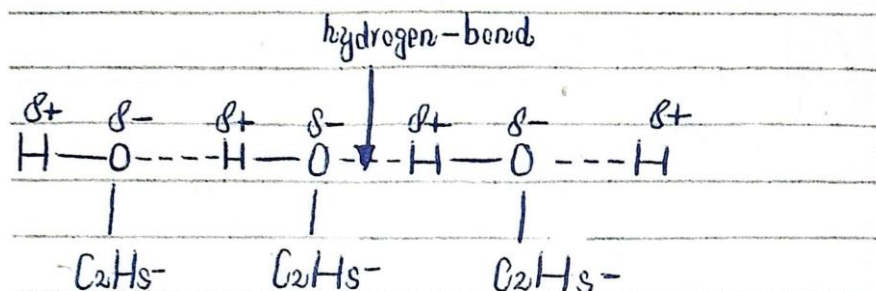 hydrogen-bond
δ+ δ- δ+ δ- δ+ δ- δ+
H—O----H—O----H—O---H
C₂H₅- C₂H₅- C₂H₅-